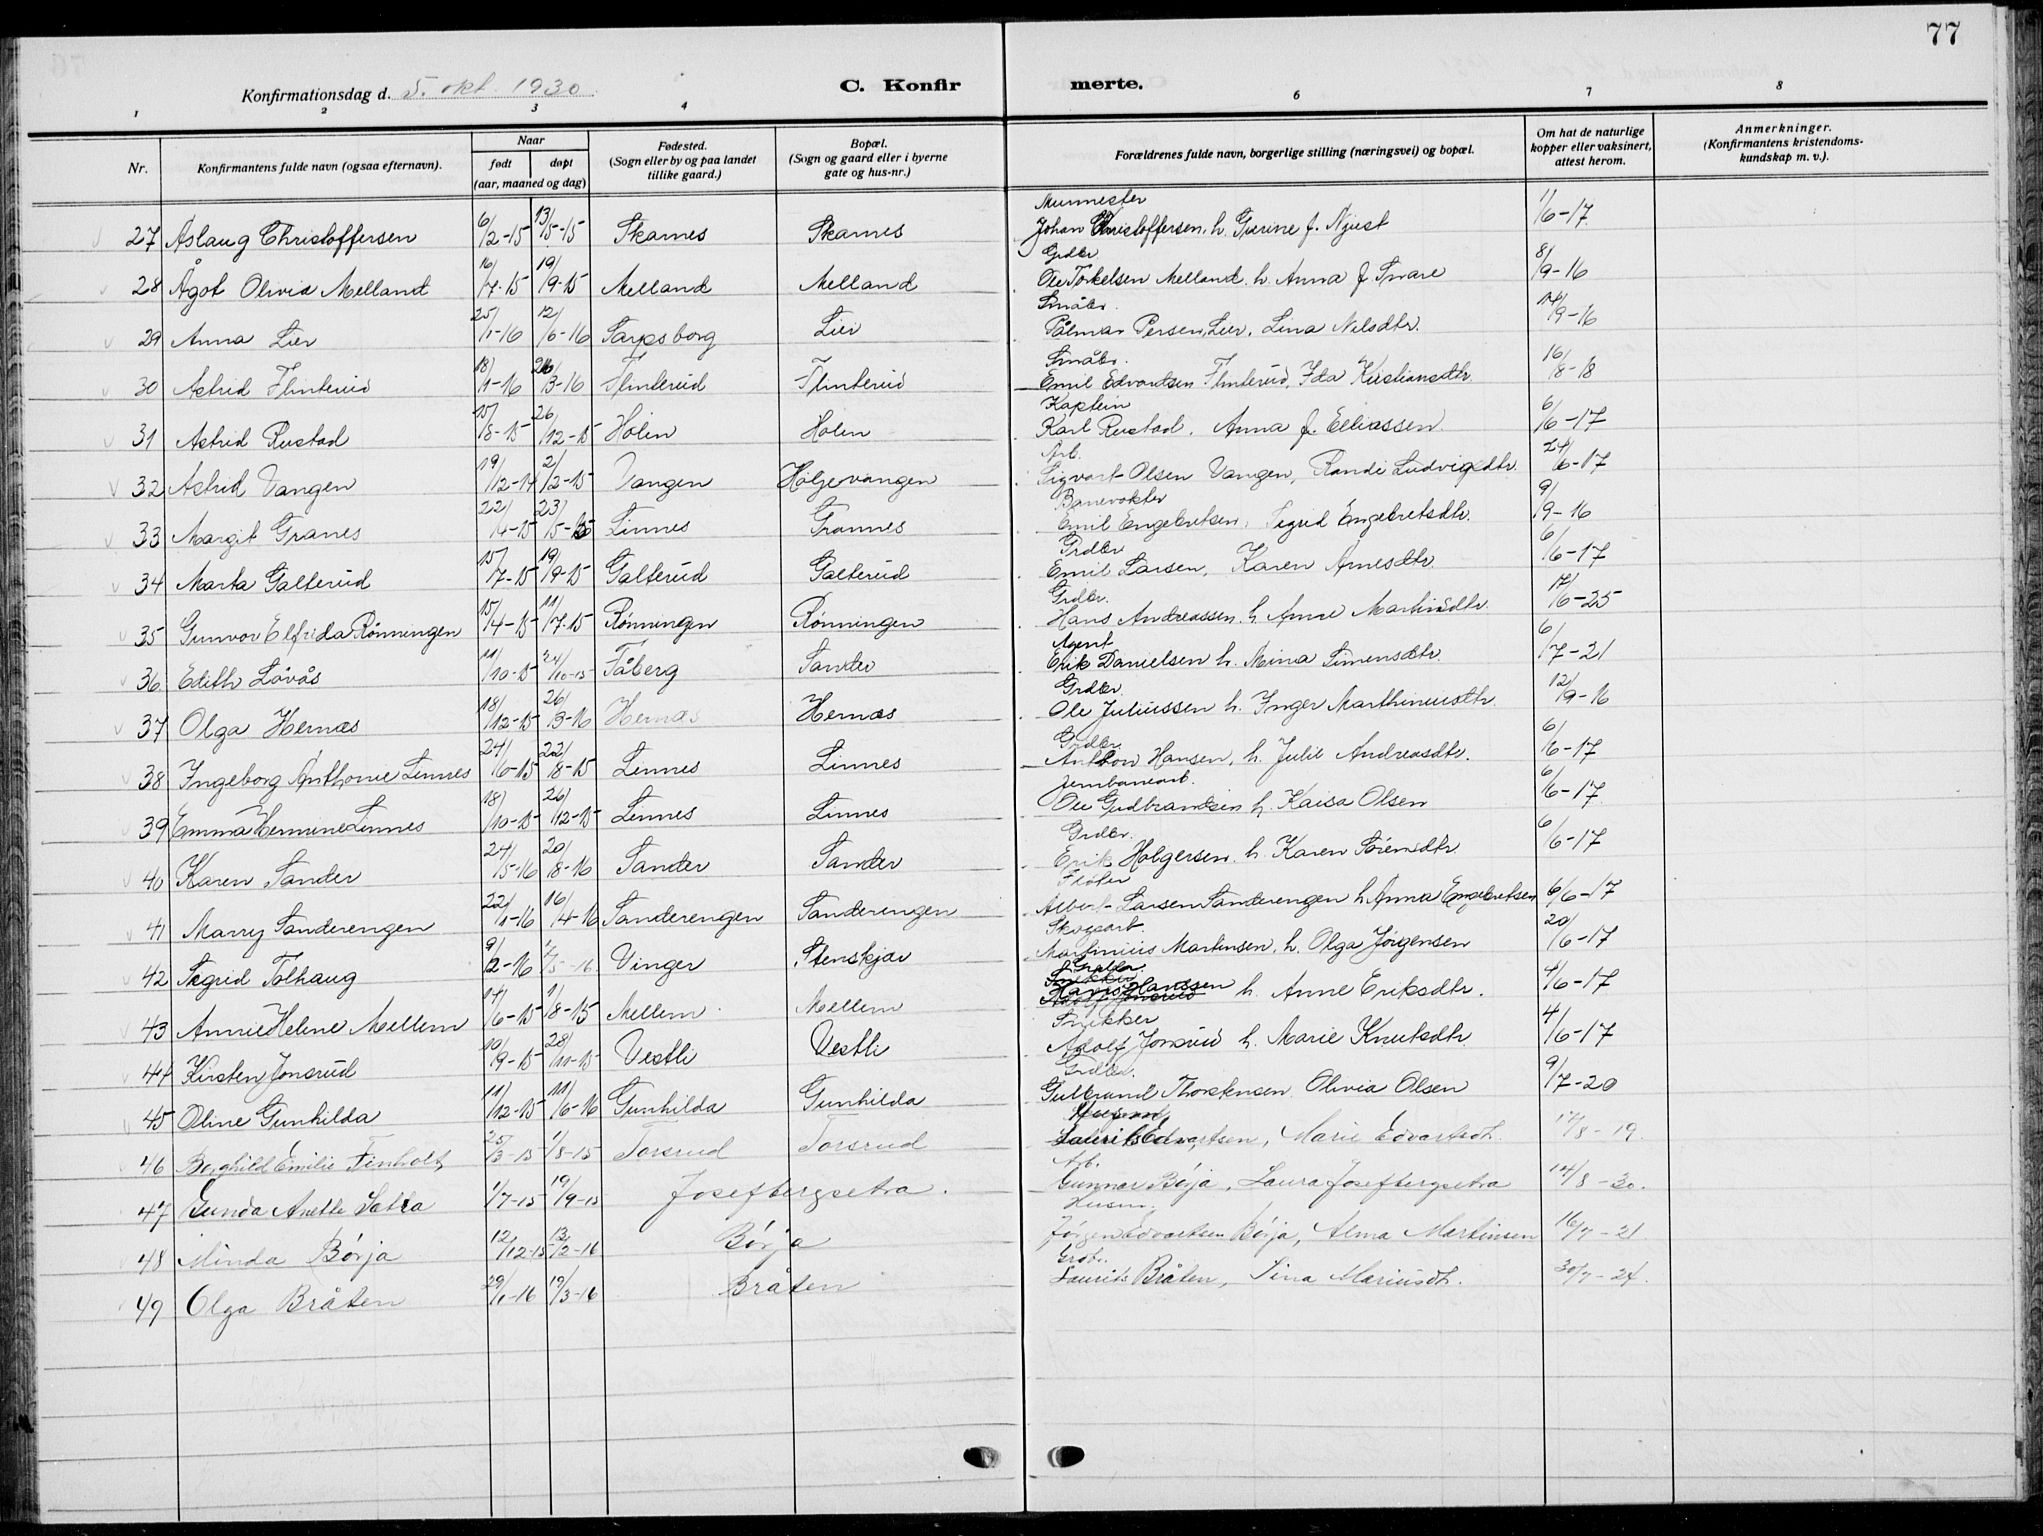 77
Konfirmationsdag d. 5. okt. 1930
C. Konfir merte.
1 2 3 4 6 7 8
Nr. Konfirmantens fulde navn (ogsaa efternavn). Naar født døpt (aar, maaned og dag) Fødested. (Sogn eller by og paa landet tillike gaard.) Bopæl. (Sogn og gaard eller i byerne gate og hus-nr.) Forældrenes fulde navn, borgerlige stilling (næringsvei) og bopæl. Om hat de naturlige kopper eller vaksinert, attest herom. Anmerkninger. (Konfirmantens kristendoms-kundskap m. v.).
Murmester
27 Aslaug Christoffersen 6/2-15 13/5-15 Skarnes Skarnes Johan Christoffersen, h. Gurine f. Njust 1/6-17
Grdbr
28 Ågot Olivia Melland 16/7-15 19/9-15 Melland Melland Ole Torkelsen Melland h. Anna f. Snare 8/9-16
Småbr.
29 Anna Lier 25/1-16 12/6-16 Sarpsborg Lier Pålmar Persen Lier, Lina Nilsdtr. 14/9-16
Småbr.
30 Astrid Flinterud 18/1-16 26/3-16 Flinterud Flinterud Emil Edvardsen Flinterud, Ida Kristiansdtr. 16/8-18
Kaptein
31 Astrid Rustad 15/8-15 26/12-15 Holen Holen Karl Rustad, Anna f. Eliassen 6/6-17
Arb.
32 Astrid Vangen 19/12-14 2/2-15 Vangen Holjevangen Sigvart Olsen Vangen, Randi Ludvigsdtr. 24/6-17
Banevokter
33 Margit Granes 22/4-15 23/5-15 Linnes Grannes Emil Engebretsen, Sigrid Engebretsdtr. 9/9-16
Grdbr
34 Marta Galterud 15/7-15 19/9-15 Galterud Galterud Emil Larsen, Karen Arnesdtr. 6/6-17
Grdbr.
35 Gunvor Elfrida Rönningen 15/4-15 11/7-15 Rönningen Rönningen Hans Andreassen h. Anne Martinsdtr. 17/6-25
Agent
36 Edith Lövås 11/10-15 24/10-15 Fåberg Sander Erik Danielsen h. Mina Simensdtr. 6/7-21
Grdbr.
37 Olga Hernæs 18/12-15 26/3-16 Hernæs Hernæs Ole Juliussen h. Inger Marthinusdtr. 12/9-16
Grdbr.
38 Ingeborg Anthonie Linnes 24/6-15 22/8-15 Linnes Linnes Anthon Hansen, h. Julie Andreasdtr. 6/6-17
Jernbanearb.
39 Emma Hermine Linnes 18/10-15 26/12-15 Linnes Linnes Ole Gudbrandsen h. Kaisa Olsen 6/6-17
Grdbr.
40 Karen Sander 24/5-16 20/8-16 Sander Sander Erik Holgersen h. Karen Sörensdtr. 6/6-17
Flöter
41 Marry Sanderengen 22/1-16 16/4-16 Sanderengen Sanderengen Albert Larsen Sanderengen h. Anna Engebretsen 6/6-17
Skogsarb.
42 Sigrid Tolhaug 9/2-16 /5-16 Vinger Stenskjær Martinius Martinsen, h. Olga Jörgensen 20/6-17
Grdbr.
43 Annie Helene Mellem 14/6-15 1/8-15 Mellem Mellem Hans Hanssen h. Anne Eriksdtr. 4/6-17
Snekker
44 Kirsten Jonsrud 10/9-15 28/11-15 Vestli Vestli Adolf Jonsrud h. Marie Knutsdtr. 4/6-17
Grdbr.
45 Oline Gunhilda 11/12-15 11/6-16 Gunhilda Gunhilda Gulbrand Thorstensen Olivia Olsen 9/7-20
46 Borghild Emilie Finholt 25/3-15 1/8-15 Torsrud Torsrud Laurits Edvartsen, Marie Edvartsdtr. 17/8-19.
Arb.
47 Gunda Anette Sætra 1/7-15 19/9-15 Josefbergsetra. Gunnar Börja, Laura Josefbergsetra 14/8-30.
Husm.
48 Minda Börja 12/12-15 13/2-16 Börja Jörgen Edvartsen Börja, Alma Martinsen 16/7-21
Grdbr.
49 Olga Bråten 29/1-16 19/3-16 Bråten Laurits Bråten, Lina Mariusdtr. 30/7-24.